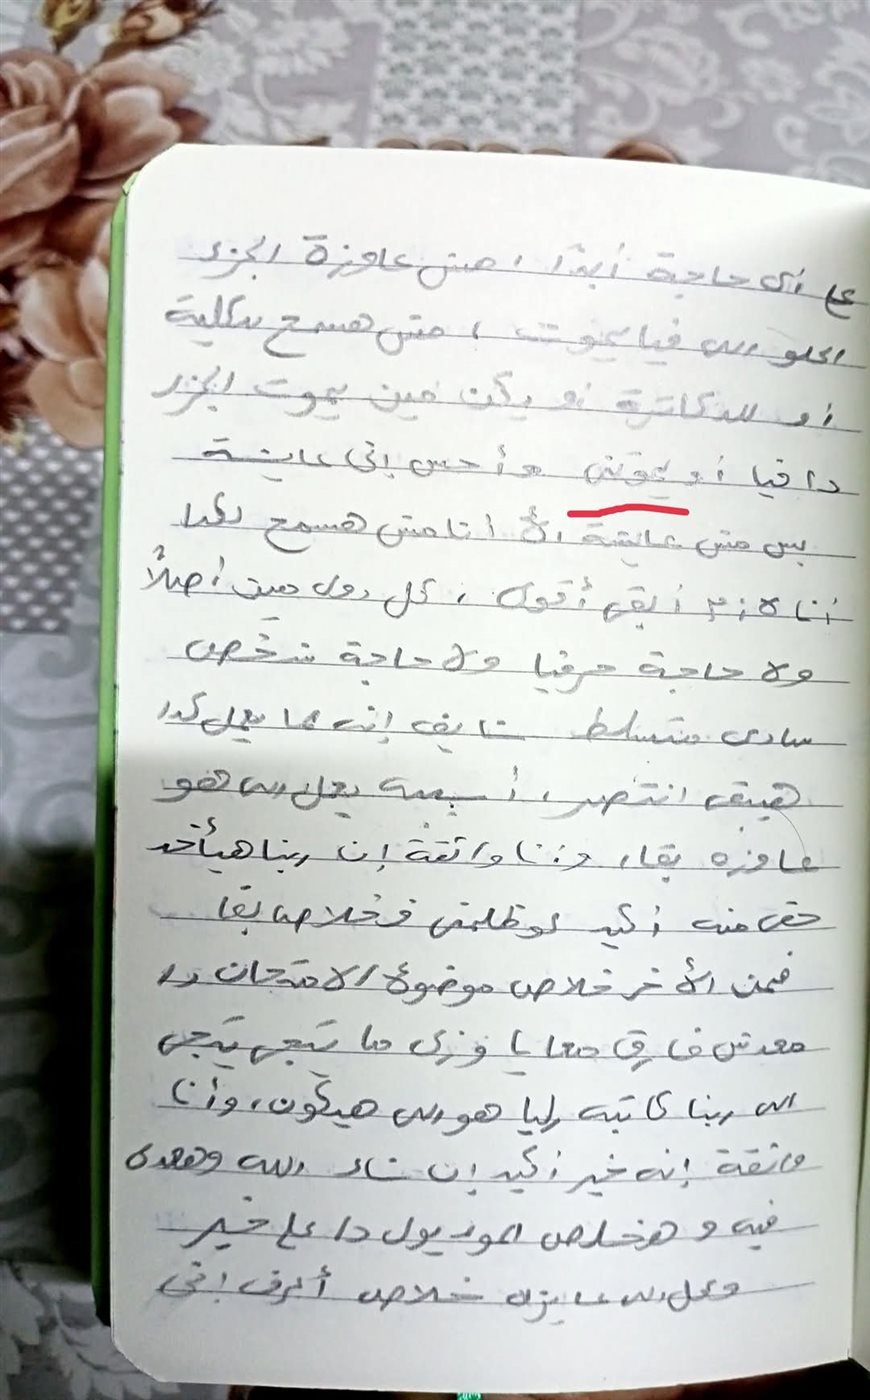 ع أي حاجة أبدًا، مش عاوزة الجزء
الحلو اللى فيا يموت، مش هسمح لكلية
أو للدكاترة نو يكن مين يموت الجزء
دا فيا أو يموتنى وأحس إنى عايشة
بس مش عايشة، لأ أنا مش هسمح لكدا
أنا لازم أبقى أقوى، كل دول مين أصلاً
ولا حاجة حرفيا ولا حاجة شخص
سادى متسلط شايف إنه لما يعمل كدا
هيبقى انتصر، أسيبه يعمل اللى هو
عاوزه بقا، وأنا واثقة إن ربنا هيأخد
حقى منه أكيد لو ظلمنى فخلاص بقا
فمن الأخر خلاص موضوع الامتحان دا
معدش فارق معايا وزى ما تيجى تيجى
اللى ربنا كاتبه ليا هو اللى هيكون، وأنا
واثقة إنه خير أكيد إن شاء الله وهعدى
فيه وهخلص الموديول دا على خير
وكل اللى عايزاه خلاص أعرف إنى